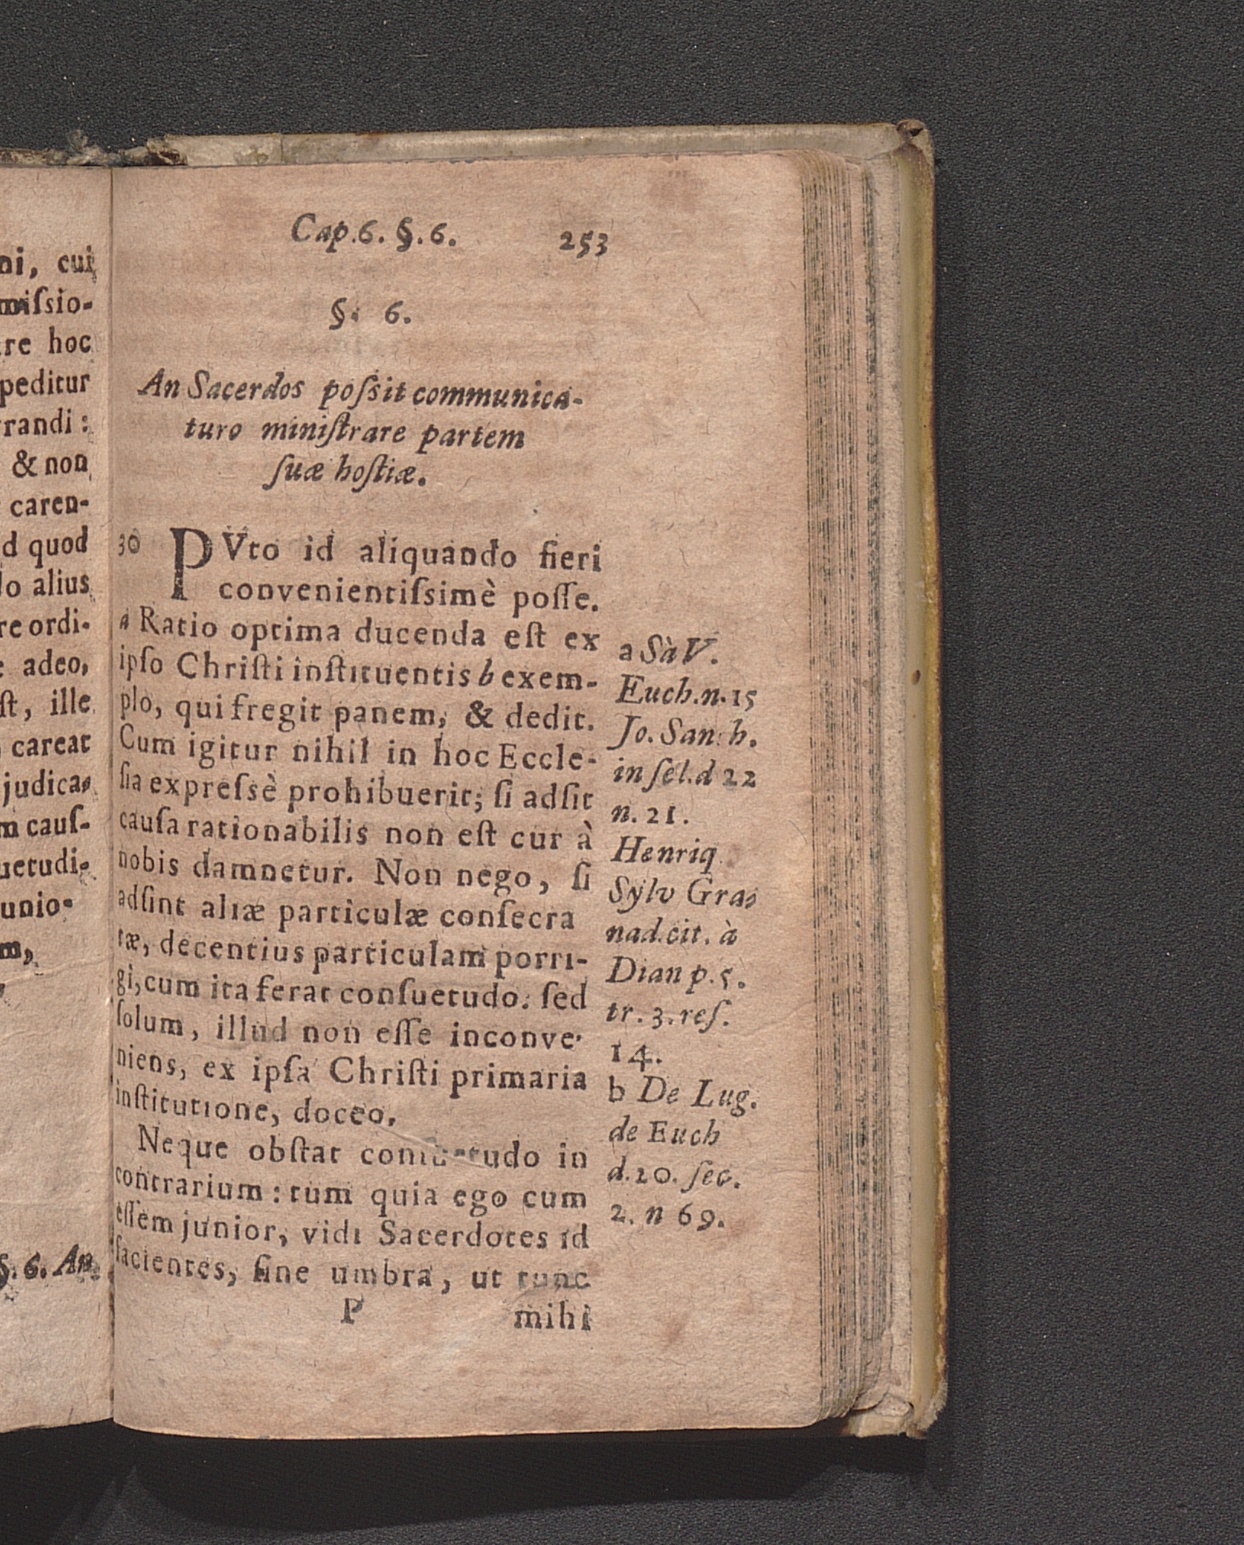 ni, cui
missio-
re hoc
peditur
randi:
& non
caren-
d quod
lo alius
re ordi-
adeo,
ſt, ille
careat
judica-
m cauſ-
uetudi-
unio-
m,
§. 6. An
Cap. 6. §. 6. 253
§. 6.
An Sacerdos poſsit communica-
turo miniſtrare partem
ſuæ hoſtiæ.
30 PVto id aliquando fieri
convenientiſsimè poſſe.
a Ratio optima ducenda eſt ex
ipſo Chriſti inſtituentis b exem-
plo, qui fregit panem, & dedit.
Cum igitur nihil in hoc Eccle-
ſia expreſsè prohibuerit; ſi adſit
cauſa rationabilis non eſt cur à
nobis damnetur. Non nego, ſi
adſint aliæ particulæ conſecra
tæ, decentius particulam porri-
gi, cum ita ferat conſuetudo. ſed
ſolum, illud non eſſe inconve-
niens, ex ipſa Chriſti primaria
inſtitutione, doceo.
Neque obſtat conſuetudo in
contrarium: tum quia ego cum
eſſem junior, vidi Sacerdotes id
facientes, ſine umbra, ut tunc
P mihi
a Sà V.
Euch. n. 15
Jo. San. h.
in ſel. d 22
n. 21.
Henriq
Sylv Gra-
nad. cit. à
Dian p. 5.
tr. 3. reſ.
14.
b De Lug.
de Euch
d. 20. ſec.
2. n 69.